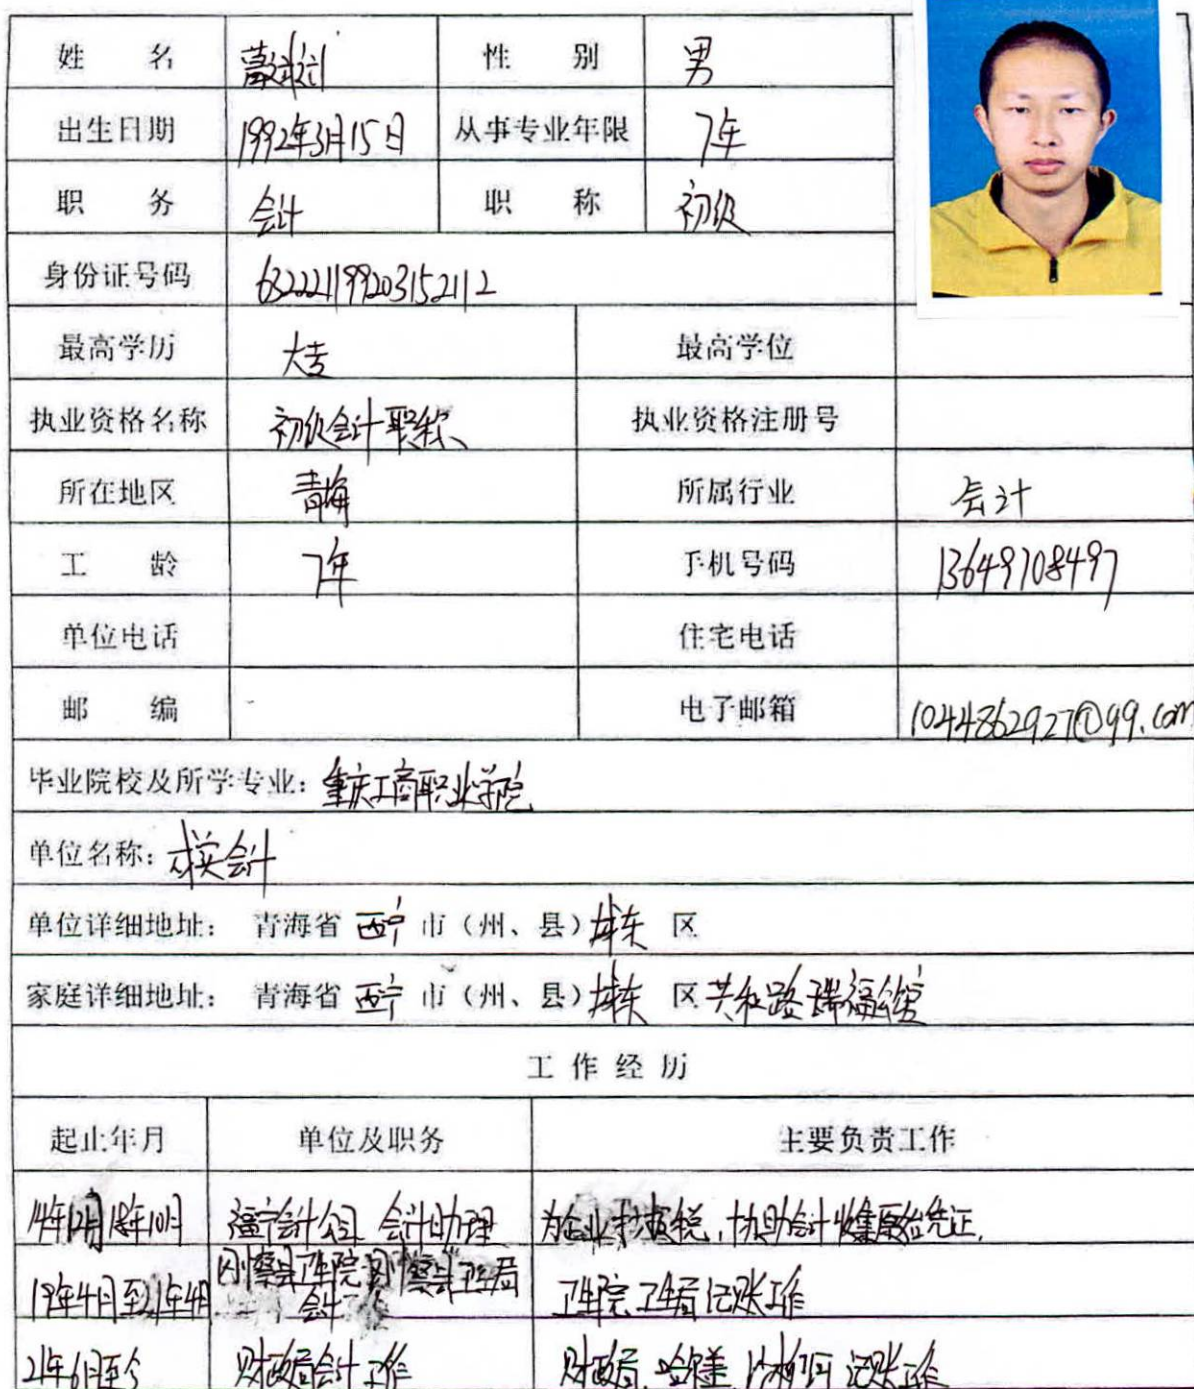 姓 名 性 别 男
出生日期 1992年3月15日 从事专业年限 7年
职 务 会计 职 称 初级
身份证号码 632221199203152112
最高学历 大专 最高学位
执业资格名称 初级会计职称 执业资格注册号
所在地区 青海 所属行业 会计
工 龄 7年 手机号码 13649708497
单位电话 住宅电话
邮 编 电子邮箱 1044862927@qq.com
毕业院校及所学专业：重庆工商职业学院
单位名称： 会计
单位详细地址： 青海省 西宁 市（州、县）城东 区
家庭详细地址： 青海省 西宁 市（州、县）城东 区 共和路瑞福公馆
工作经历
起止年月 单位及职务 主要负责工作
14年12月 18年10月 福宁会计公司 会计助理 为企业 报税，协助会计收集原始凭证.
19年4月至21年4月 刚察县卫生院 刚察县卫生局 会计 卫生院 卫生局记账工作
21年6月至今 财政局会计工作 财政局、哈尔盖、沙柳河 记账工作